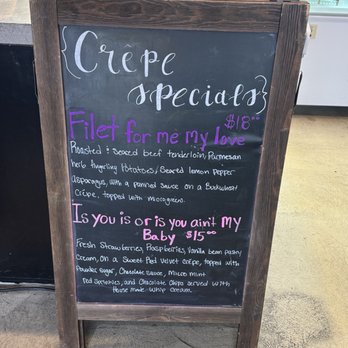 {Crêpe
specials}
Filet for me my love
$18⁰⁰
Roasted & seared beef tenderloin, Parmesan
herb fingerling Potatoes, Seared lemon pepper
asparagus, with a sauce on a Buckwheat
Crepe, topped with microgreens.
Is you is or is you ain't MY
Baby $15⁰⁰
Fresh Strawberries, Raspberries, Vanilla bean pastry
Cream, on a Sweet Red Velvet crepe, topped with
Powder sugar, Chocolate sauce, Micro mint
Red sprinkles, and Chocolate Chips served with
House made whip cream.